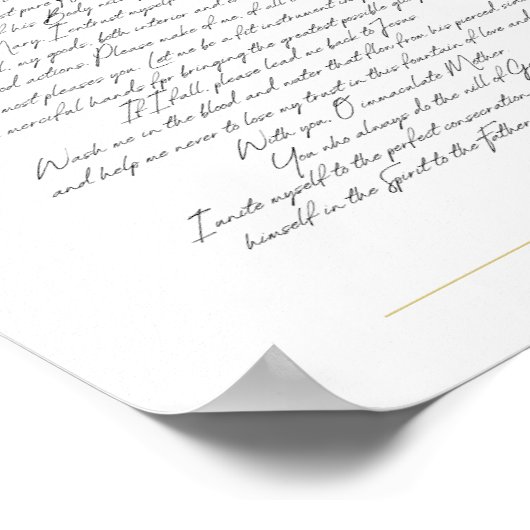 his Body
Mary, I entrust myself
my goods, both interior and
good actions. Please make of me, of all
most pleases you. Let me be a fit instrument in
merciful hands for bringing the greatest possible
If I fall, please lead me back to Jesus.
Wash me in the blood and water that flow from his pierced side
and help me never to lose my trust in this fountain of love and
With you, O immaculate Mother,
You who always do the will of
I unite myself to the perfect consecration
himself in the Spirit to the Father